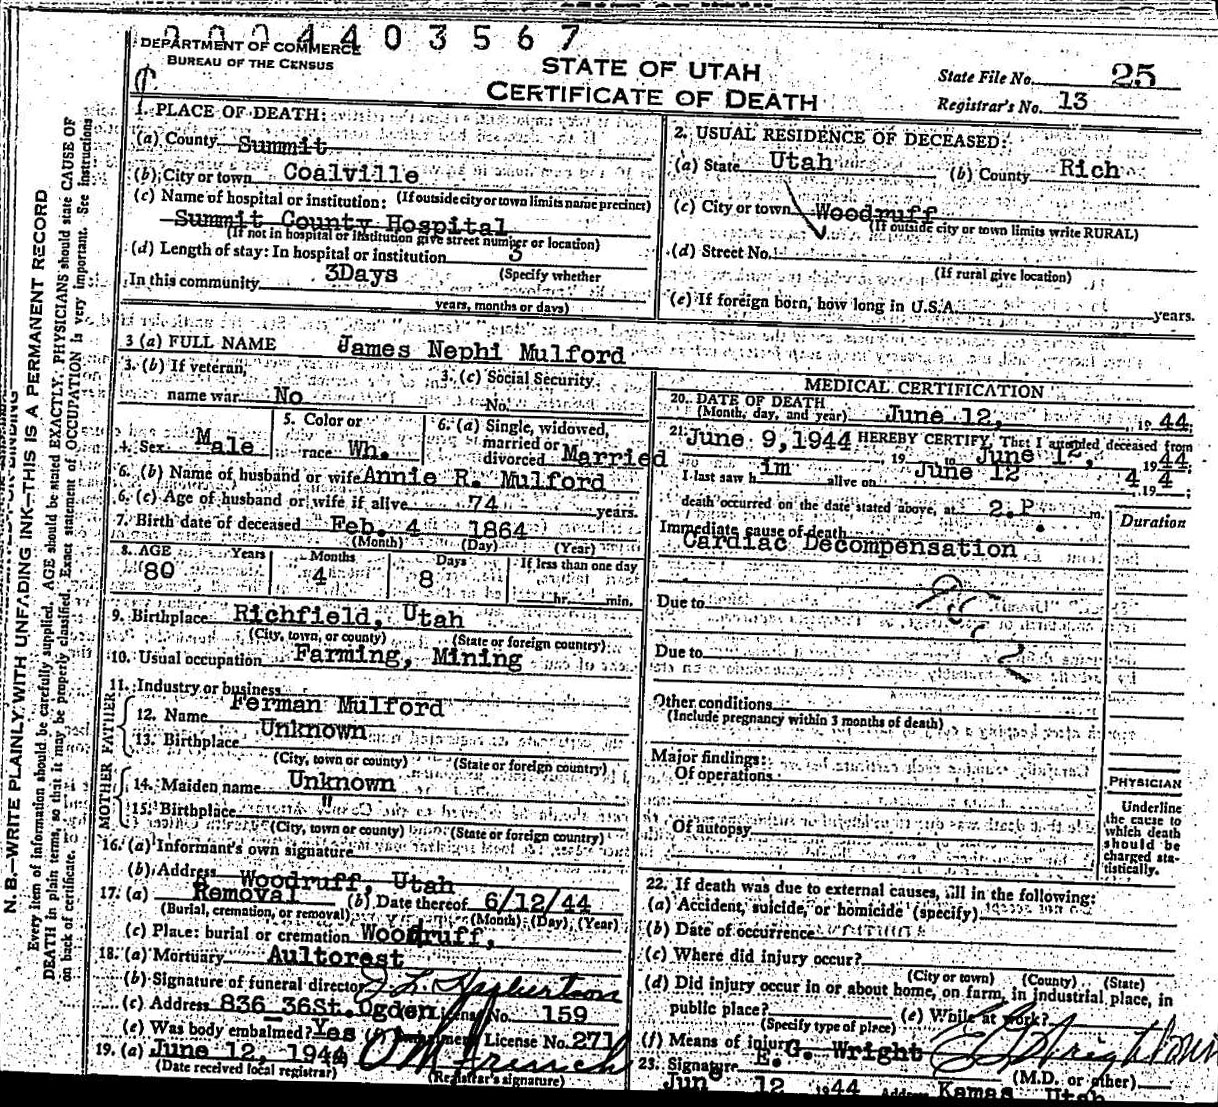 0004403567
DEPARTMENT OF COMMERCE
BUREAU OF THE CENSUS
STATE OF UTAH
CERTIFICATE OF DEATH
State File No. 25
Registrar's No. 13
1. PLACE OF DEATH:
(a) County Summit
(b) City or town Coalville
(If outside city or town limits name precinct)
(c) Name of hospital or institution:
Summit County Hospital
(If not in hospital or institution give street number or location)
(d) Length of stay: In hospital or institution 3
(Specify whether
In this community 3Days
years, months or days)
2. USUAL RESIDENCE OF DECEASED:
(a) State Utah (b) County Rich
(c) City or town Woodruff
(If outside city or town limits write RURAL)
(d) Street No.
(If rural give location)
(e) If foreign born, how long in U.S.A. years.
3 (a) FULL NAME James Nephi Mulford
3. (b) If veteran,
name war No
3. (c) Social Security
No.
4. Sex Male
5. Color or
race Wh.
6. (a) Single, widowed,
married or
divorced Married
6. (b) Name of husband or wife Annie R. Mulford
6. (c) Age of husband or wife if alive 74 years.
7. Birth date of deceased Feb. 4 1864
(Month) (Day) (Year)
8. AGE Years Months Days If less than one day
80 4 8 hr. min.
9. Birthplace Richfield, Utah
(City, town, or county) (State or foreign country)
10. Usual occupation Farming, Mining
11. Industry or business
FATHER
12. Name Ferman Mulford
13. Birthplace Unknown
(City, town or county) (State or foreign country)
MOTHER
14. Maiden name Unknown
15. Birthplace "
(City, town or county) (State or foreign country)
16. (a) Informant's own signature
(b) Address Woodruff, Utah
17. (a) Removal (b) Date thereof 6/12/44
(Burial, cremation, or removal) (Month) (Day) (Year)
(c) Place: burial or cremation Woodruff,
18. (a) Mortuary Aultorest
(b) Signature of funeral director
(c) Address 836 36St. Ogden License No. 159
(e) Was body embalmed? Yes License No. 271
19. (a) June 12, 1944
(Date received local registrar) (Registrar's signature)
MEDICAL CERTIFICATION
20. DATE OF DEATH
(Month, day, and year) June 12, 19 44;
21. June 9, 1944 HEREBY CERTIFY, That I attended deceased from
19 to June 12, 19 44;
I last saw h im alive on June 12 19 44;
death occurred on the date stated above, at 2.P. m.
Duration
Immediate cause of death
Cardiac Decompensation
Due to
Due to
Other conditions
(Include pregnancy within 3 months of death)
Major findings:
Of operations
Of autopsy
PHYSICIAN
Underline
the cause to
which death
should be
charged sta-
tistically.
22. If death was due to external causes, fill in the following:
(a) Accident, suicide, or homicide (specify)
(b) Date of occurrence
(c) Where did injury occur?
(City or town) (County) (State)
(d) Did injury occur in or about home, on farm, in industrial place, in
public place? (e) While at work?
(Specify type of place)
(f) Means of injury
23. Signature E. G. Wright
(M.D. or other)
June 12 1944 Kamas, Utah
N. B.—WRITE PLAINLY, WITH UNFADING INK—THIS IS A PERMANENT RECORD
Every item of information should be carefully supplied. AGE should be stated EXACTLY. PHYSICIANS should state CAUSE OF
DEATH in plain terms, so that it may be properly classified. Exact statement of OCCUPATION is very important. See instructions
on back of certificate.